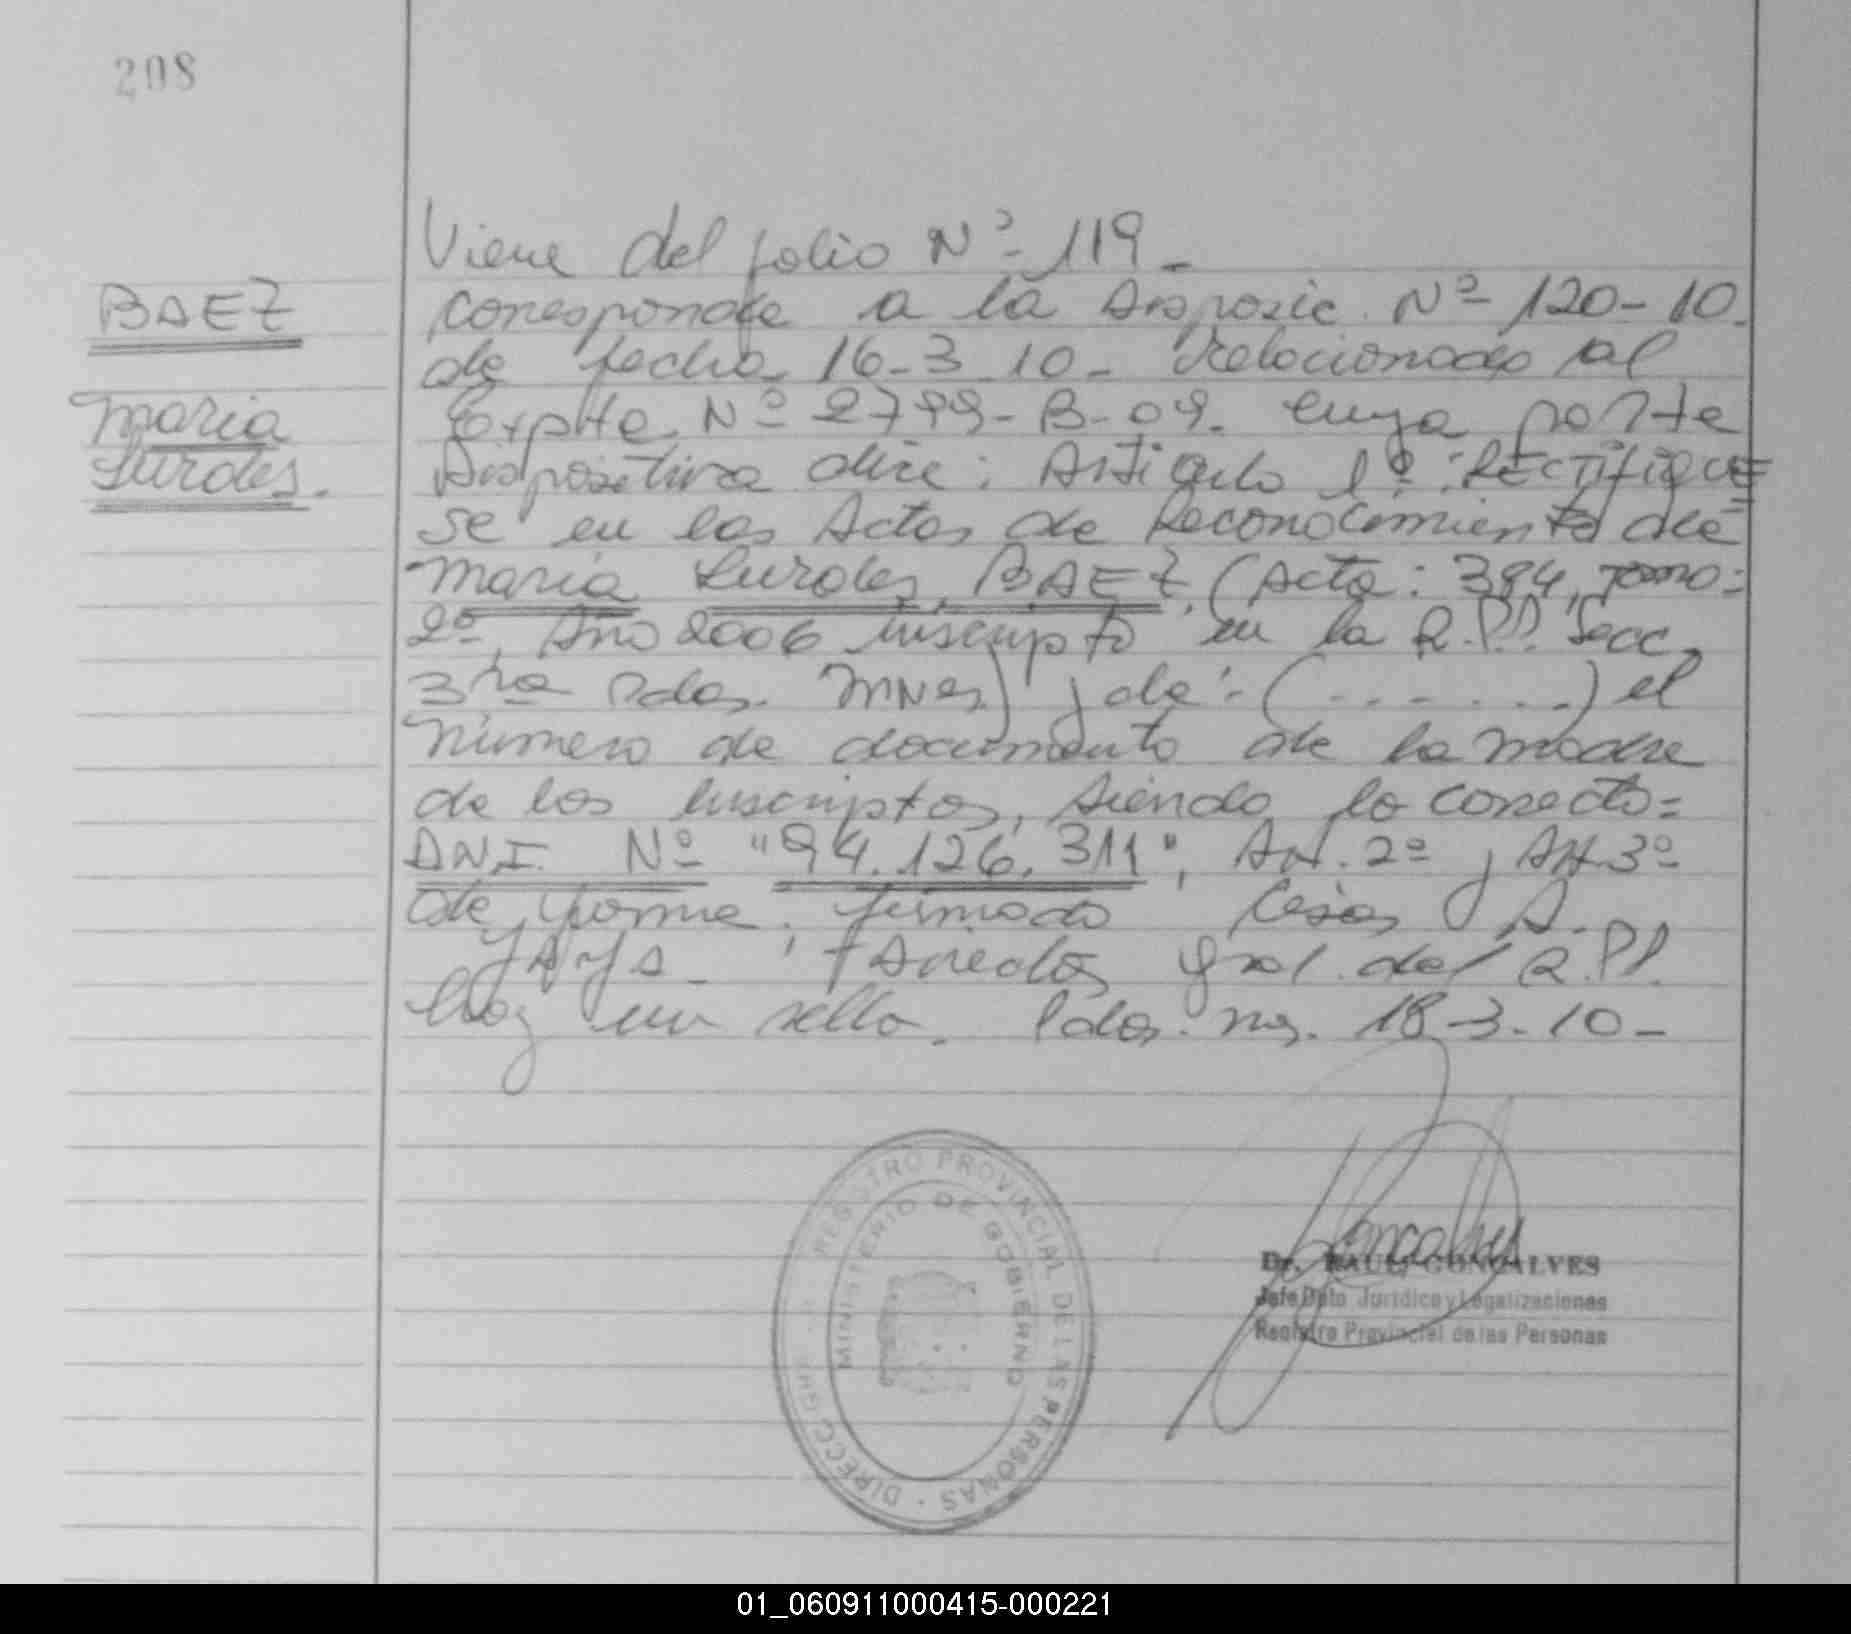 208
Viene del folio Nº 119-
BAEZ
corresponde a la Disposic. Nº 120-10.
de fecha 16-3-10- Relacionada al
Maria
Expte Nº 2799-B-09. cuya parte
Lurdes.
Dispositiva dice: Articulo 1º: RECTIFIQUE
se en las Actas de Reconocimiento de
Maria Lurdes BAEZ, (Acta: 394, Tomo:
2º, Año 2006 inscripto en la R.P.P. Secc.
3ra Pdas. MNes) y de:- (- - - - - -) el
número de documento de la madre
de los inscriptos, siendo lo correcto=
DNI. Nº "94.126.311", Art. 2º y Art. 3º
de forma, firmado Cesar A.
Director Gral. del R.PP.
hay un sello. Pdas. ns. 18-3-10-
DIRECC GRAL REGISTRO PROVINCIAL DE LAS PERSONAS
MINISTERIO DE GOBIERNO
Dr. RAUL GONCALVES
Jefe Dpto Jurídico y Legalizaciones
Registro Provincial de las Personas
01_060911000415-000221